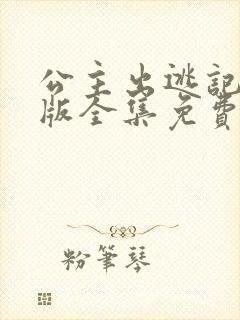 公主出逃記
版全集免費
粉筆琴